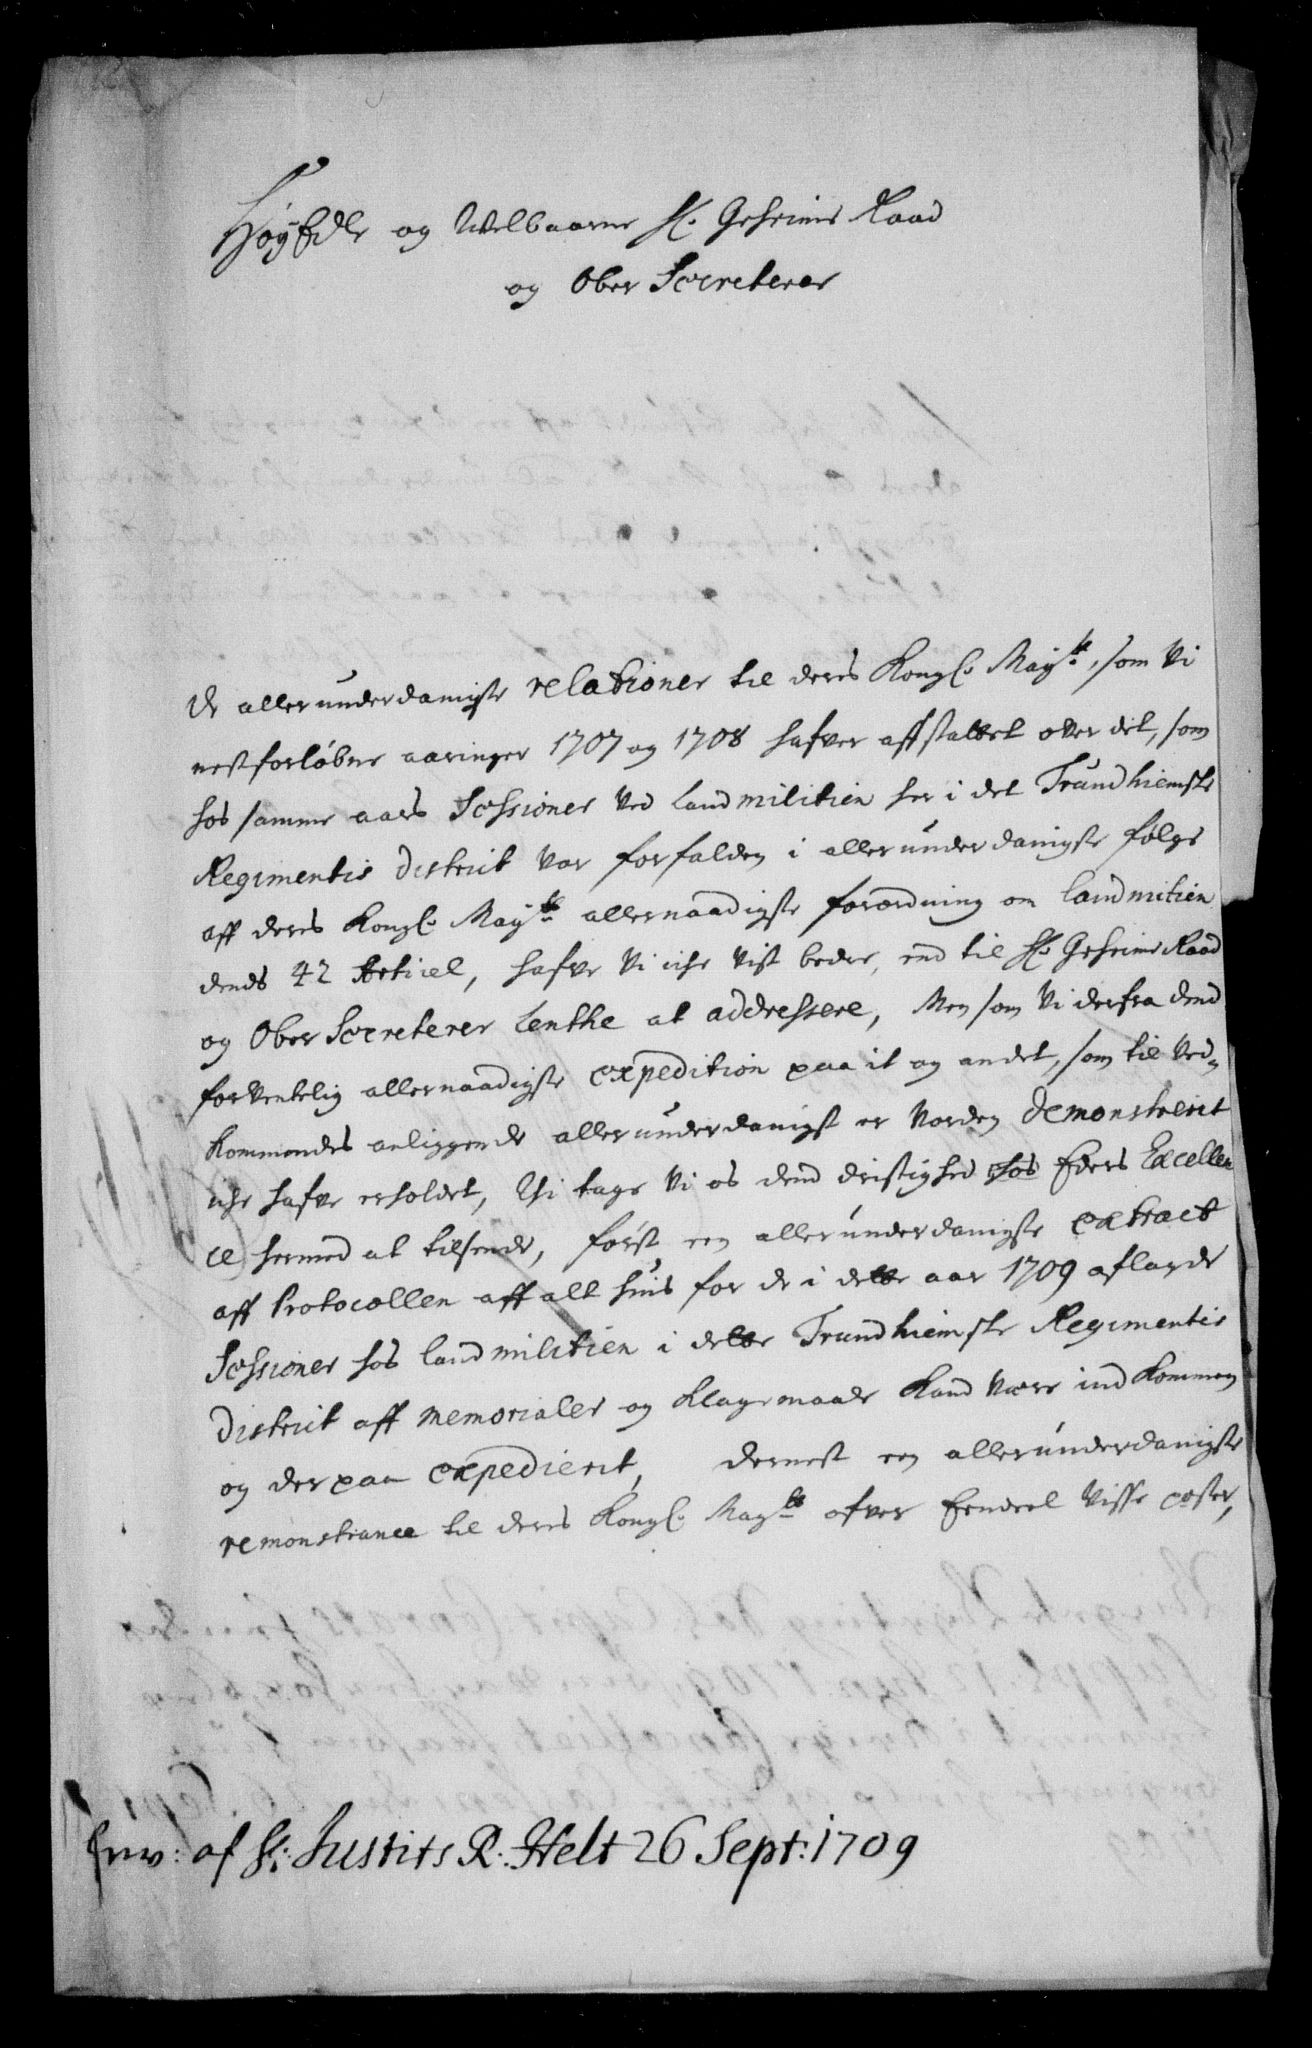 HøyEdle og Welbaarne H. Geheime Raad
og Ober Secreterer
De allerunderdanigste relationer til deres Kongl. Mayts, som Vi
nestforløbne aaringer 1707 og 1708 hafver affstattet over det, som
hos samme aars Sessioner Ved Landmilitien her i det Trundhiemske
Regimentis District Var forfalden i allerunderdanigste følge
aff deres Kongl. Mayts allernaadigste forordning om Landmitien
dends 42 Articel, hafve Vi iche Vist bedre, end til H. Geheime Raad
og Ober Secreterer Lenthe at addressere, Men som Vi derfra dend
forVentelig allernaadigste expedition paa it og andet, som til Ved-
Kommendes anliggende allerunderdanigst er Vorden demonstrerit
iche hafve erholdet, Thi tage Vi os dend dristighed hos Eders Excellen
ce hermed at tilsende, først een allerunderdanigste extract
aff Protocollen aff alt huis for de i dette aar 1709 aflagde
Sessioner hos Landmilitien i dette Trundhiemske Regimentis
District aff memorialer og Klagemaade Kand Være indkommen
og derpaa expedierit, dernest een allerunderdanigste
remonstrance til deres Kongl. Mayts ofver Eendeel Visse poster,
lev: af H: Justits R: Helt 26 Sept: 1709